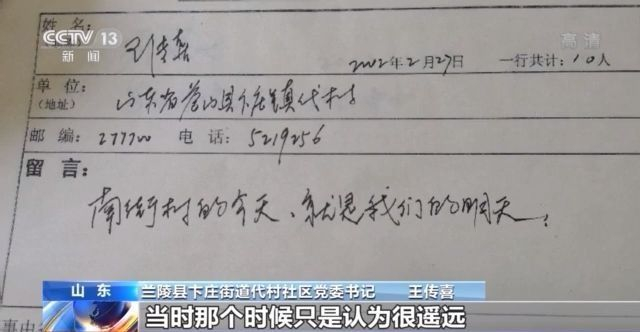 CCTV 13
新闻
高清
姓名: 王传喜 2002年2月27日 一行共计: 10人
单位:
(地址) 山东省苍山县卞庄镇代村
邮编: 277700 电话: 5219256
留言:
南街村的今天、就是我们的明天。
山东 兰陵县卞庄街道代村社区党委书记 王传喜
当时那个时候只是认为很遥远